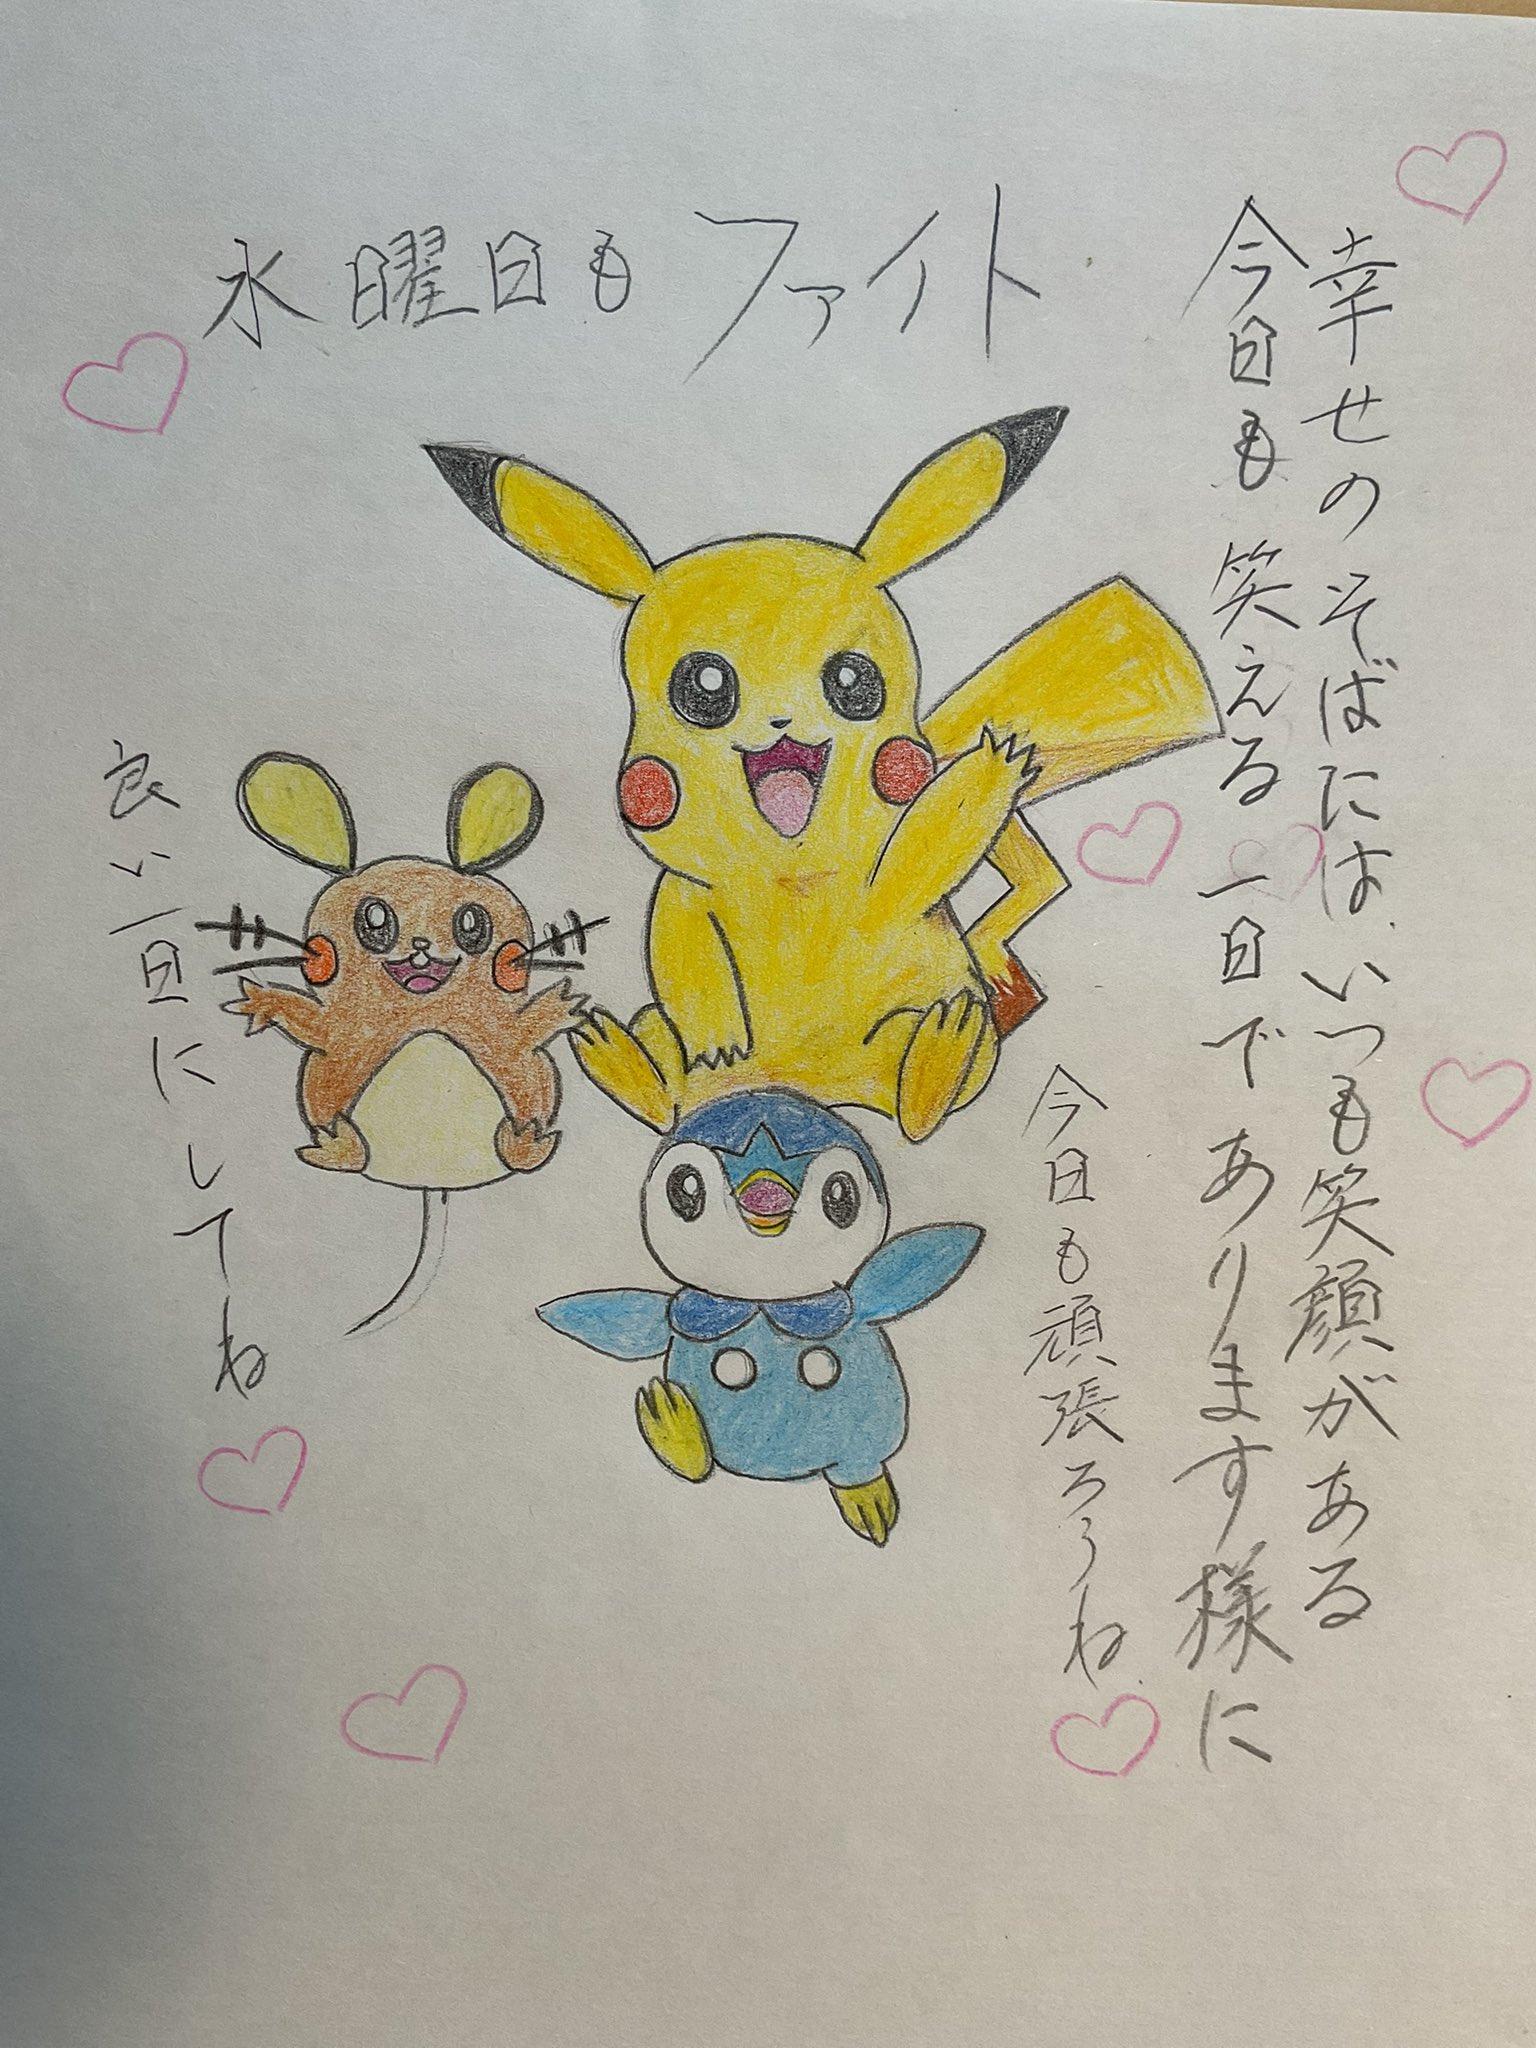 水曜日もファイト
幸せのそばには、いつも笑顔がある
今日も笑える一日であります様に
今日も頑張ろうね
良い一日にしてね